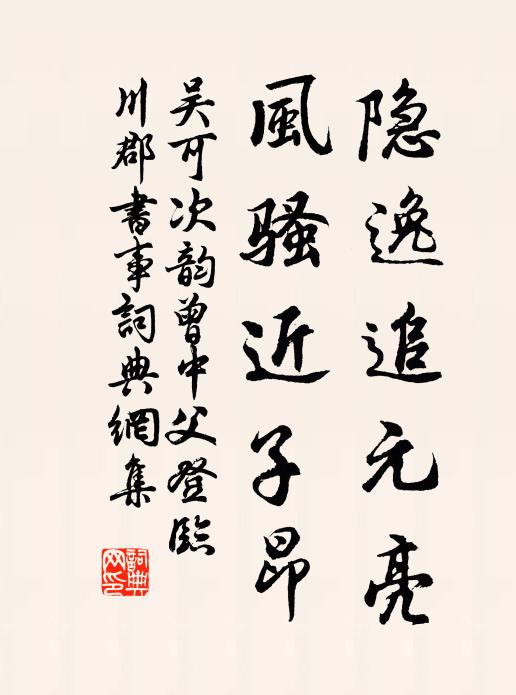 隐逸追元亮
風骚近子昂
吴可次韵曾中父登臨
川郡書事詞典網集
詞典网印